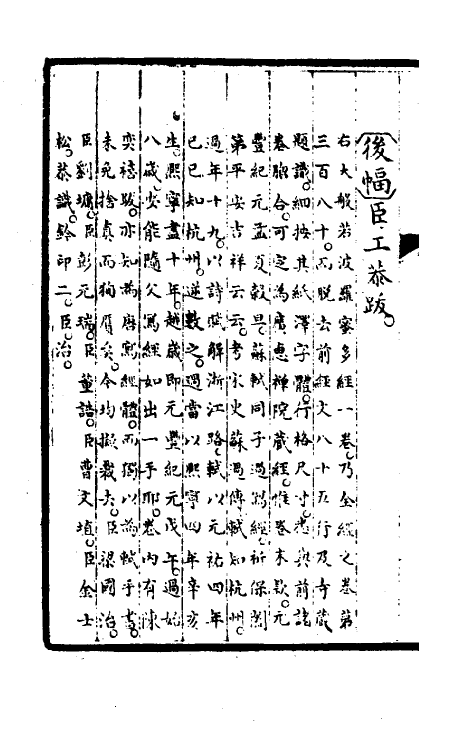 後幅臣工恭跋
右大般若波羅蜜多經一卷乃全經之卷第
三百八十而脫去前經文八十五行及寺藏
題識細按其紙澤字體行格尺寸悉與前諸
卷脗合可定為廣惠禪院藏經惟卷末款元
豐紀元孟夏穀旦蘇軾同子過寫經祈保闔
第平安吉祥云云考宋史蘇過傳軾知杭州
過年十九以詩賦解浙江路軾以元祐四年
己巳知杭州逆數之過當以熙寧四年辛亥
生熙寧盡十年越歲即元豐紀元戊午過始
八歲安能隨父寫經如出一手耶卷內有陳
奕禧跋亦知為唐寫經體而獨以為軾手書
未免捨真而狥贗矣今均撤去臣梁國治
臣劉墉臣彭元瑞臣董誥臣曹文埴臣金士
松恭識鈐印二臣治